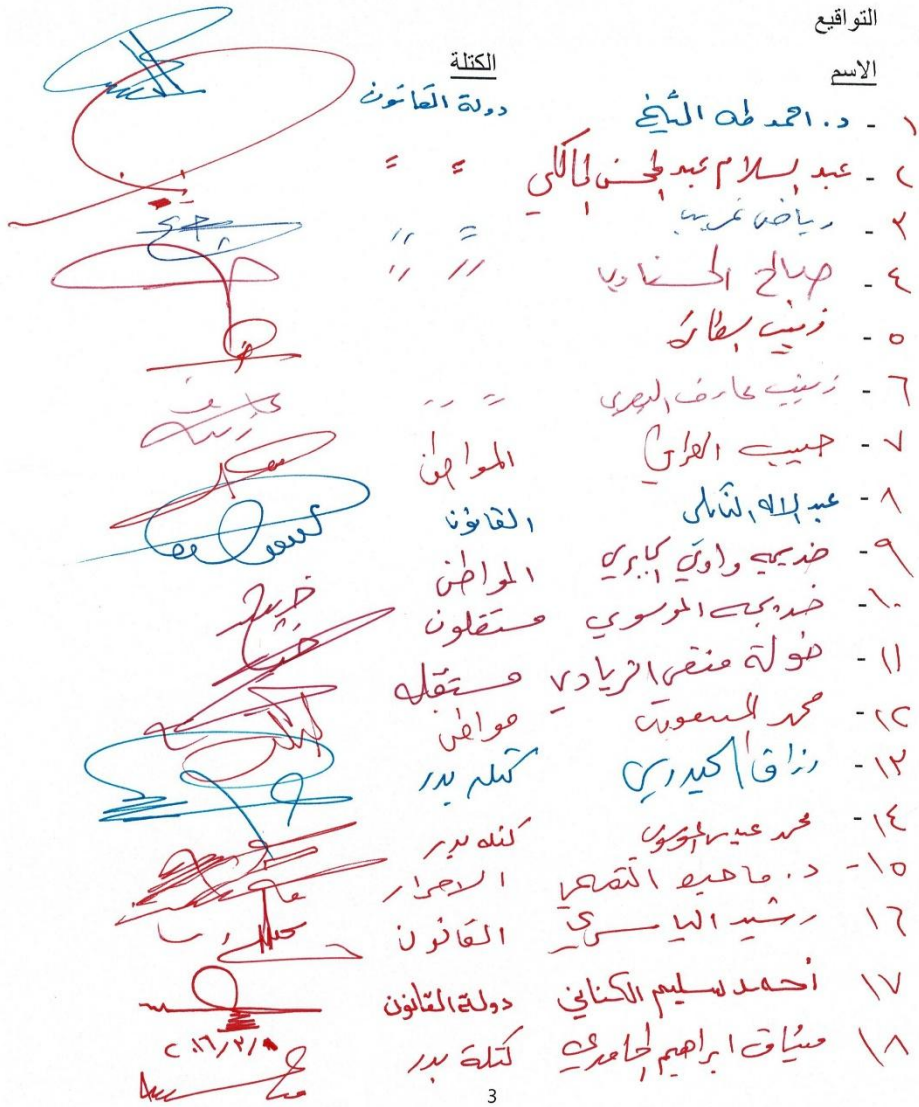 التواقيع
الاسم الكتلة
١ - د. احمد طه الشيخ دولة القانون
٢ - عبد السلام عبد المحسن المالكي = =
٣ - رياض غريب = =
٤ - صالح الحسناوي = =
٥ - زينب
٦ - زينب عارف البصري = =
٧ - حبيب المواطن
٨ - عبد الاله النائلي القانون
٩ - خديجه وادي الجابري المواطن
١٠ - خديجه الموسوي مستقلون
١١ - خولة منفي الزيادي مستقله
١٢ - محمد المسعودي مواطن
١٣ - رزاق الحيدري كتله بدر
١٤ - محمد الموسوي كتله بدر
١٥ - د. ماجد الاحرار
١٦ رشيد الياسري القانون
١٧ احمد سليم الكناني دولة القانون
١٨ ميثاق ابراهيم الحامدي كتلة بدر
3